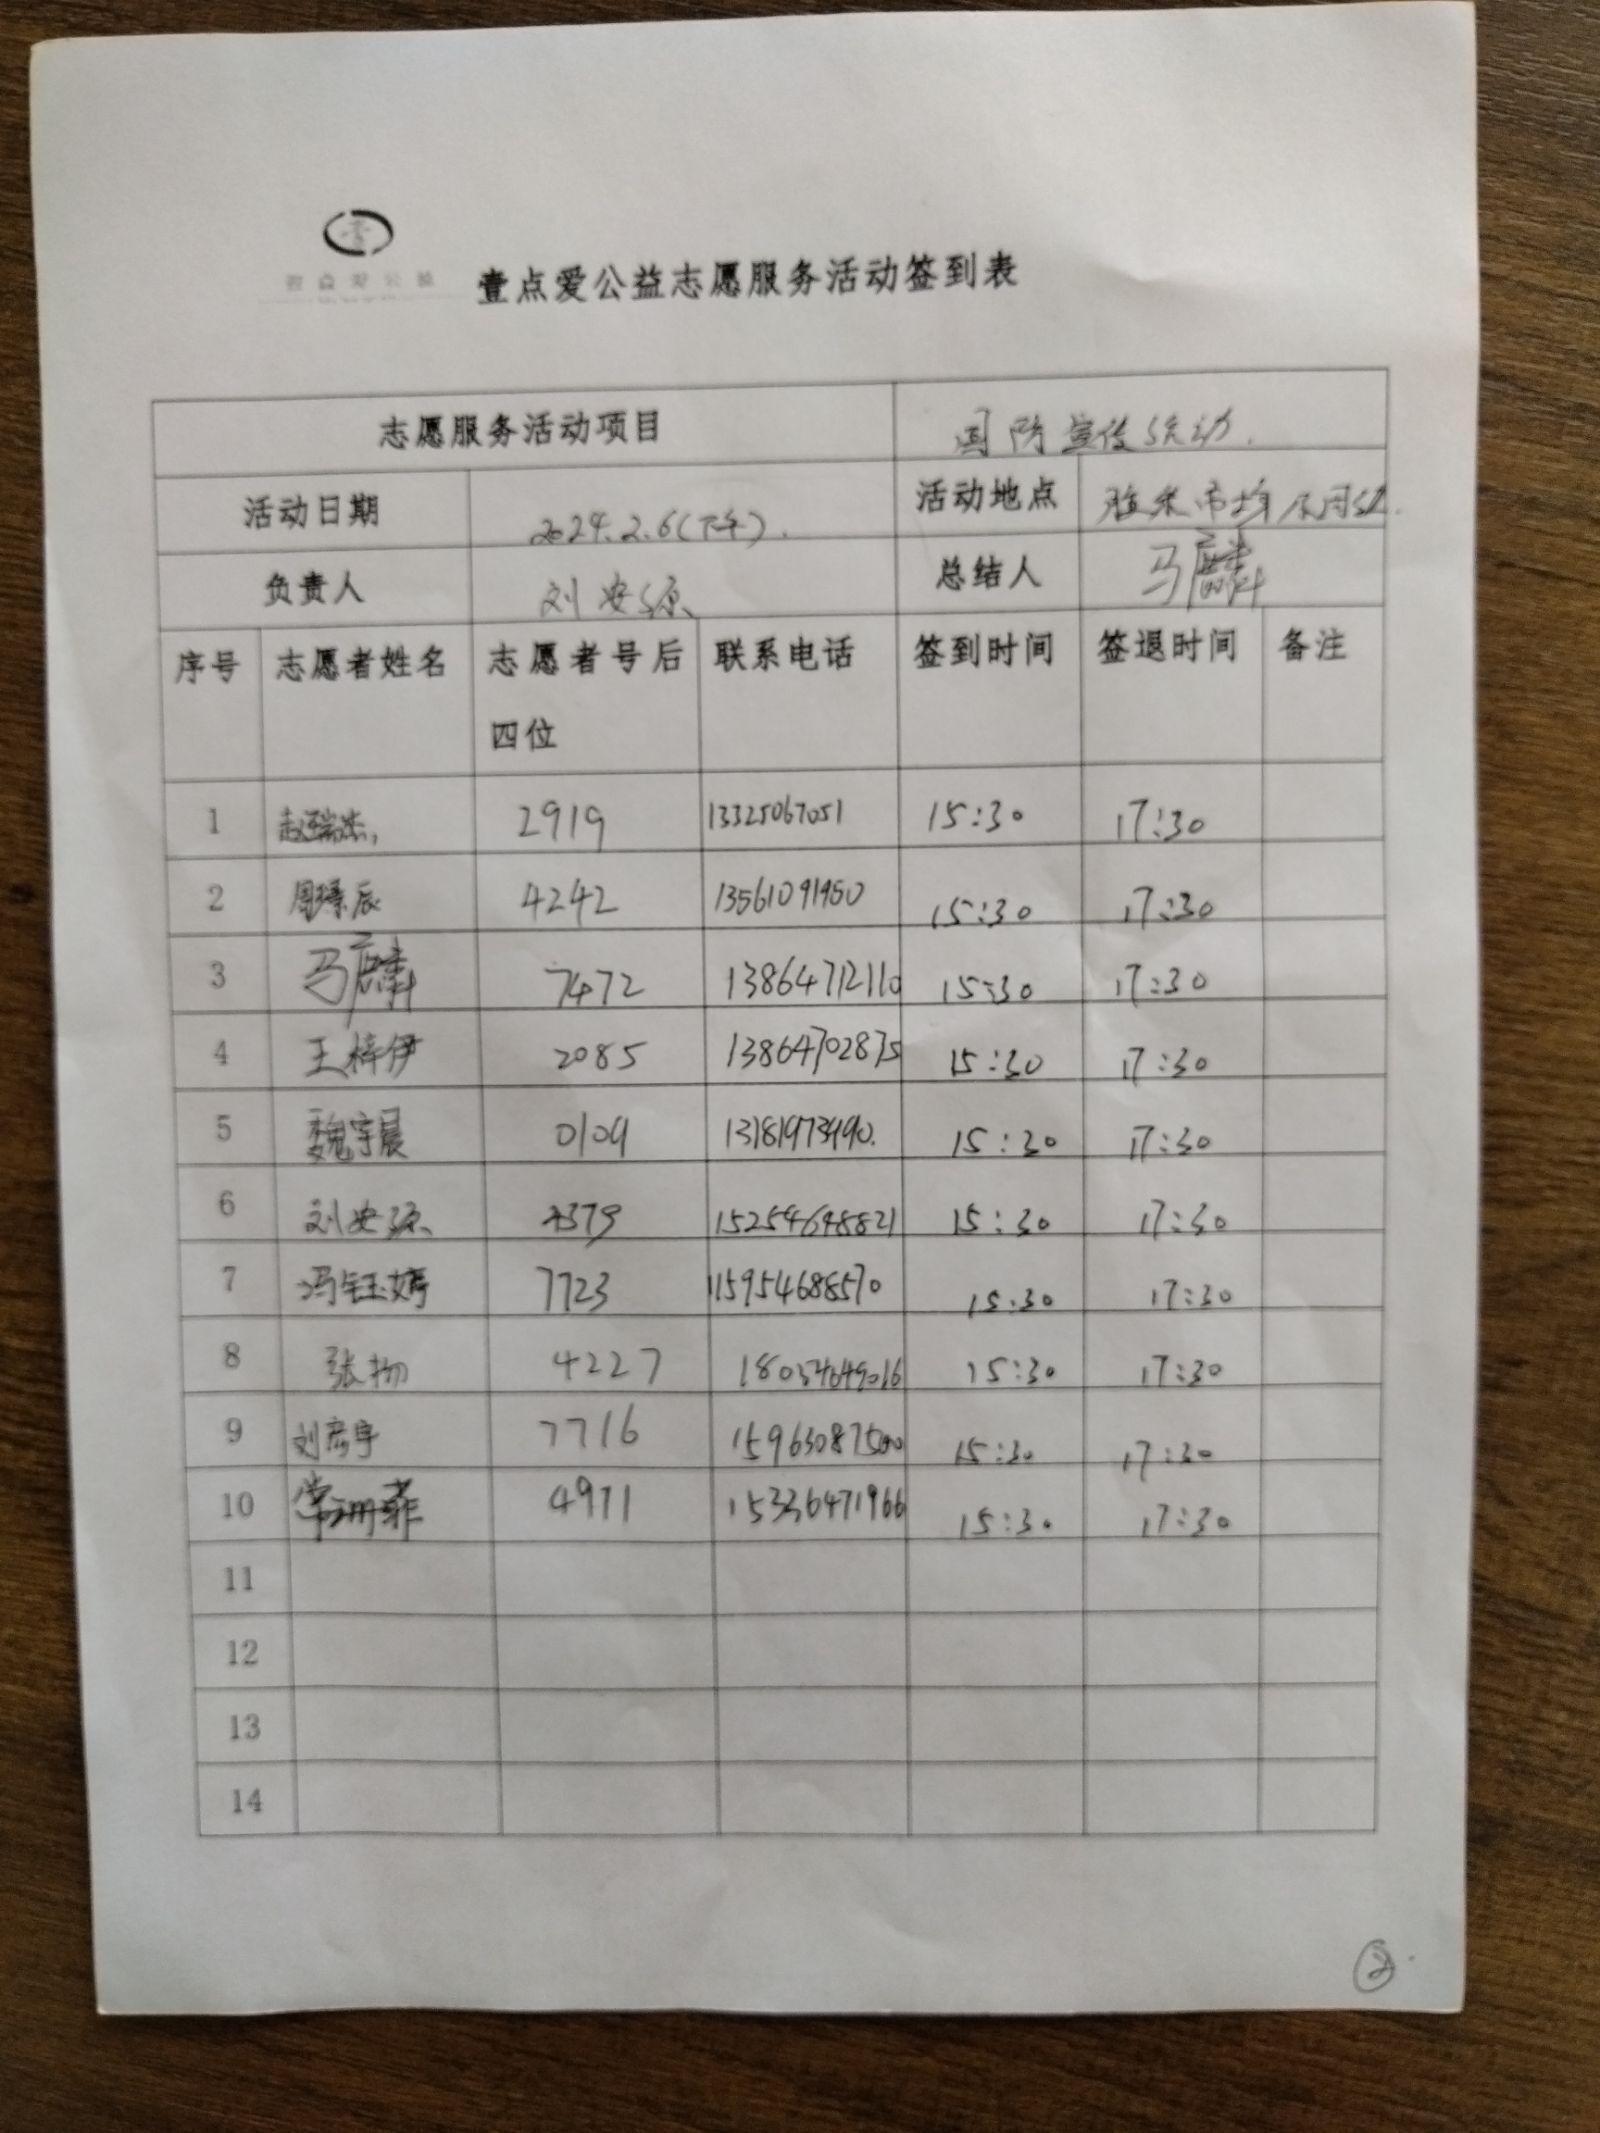 壹点爱公益
壹点爱公益志愿服务活动签到表
志愿服务活动项目 国防宣传活动.
活动日期 2024.2.6(下午). 活动地点 胶东市场
负责人 刘安源 总结人 马麟
序号 志愿者姓名 志愿者号后四位 联系电话 签到时间 签退时间 备注
1 赵瑞杰, 2919 13325067051 15:30 17:30
2 周璟辰 4242 13561091950 15:30 17:30
3 马麟 7472 13864712110 15:30 17:30
4 王梓伊 2085 13864702875 15:30 17:30
5 魏宇晨 0109 13181973490. 15:30 17:30
6 刘安源 15254648821 15:30 17:30
7 冯钰婷 7723 15954688570 15:30 17:30
8 张扬 4227 18054649016 15:30 17:30
9 刘彦宇 7716 15963087500 15:30 17:30
10 常珊菲 4971 15336471966 15:30 17:30
11
12
13
14
②